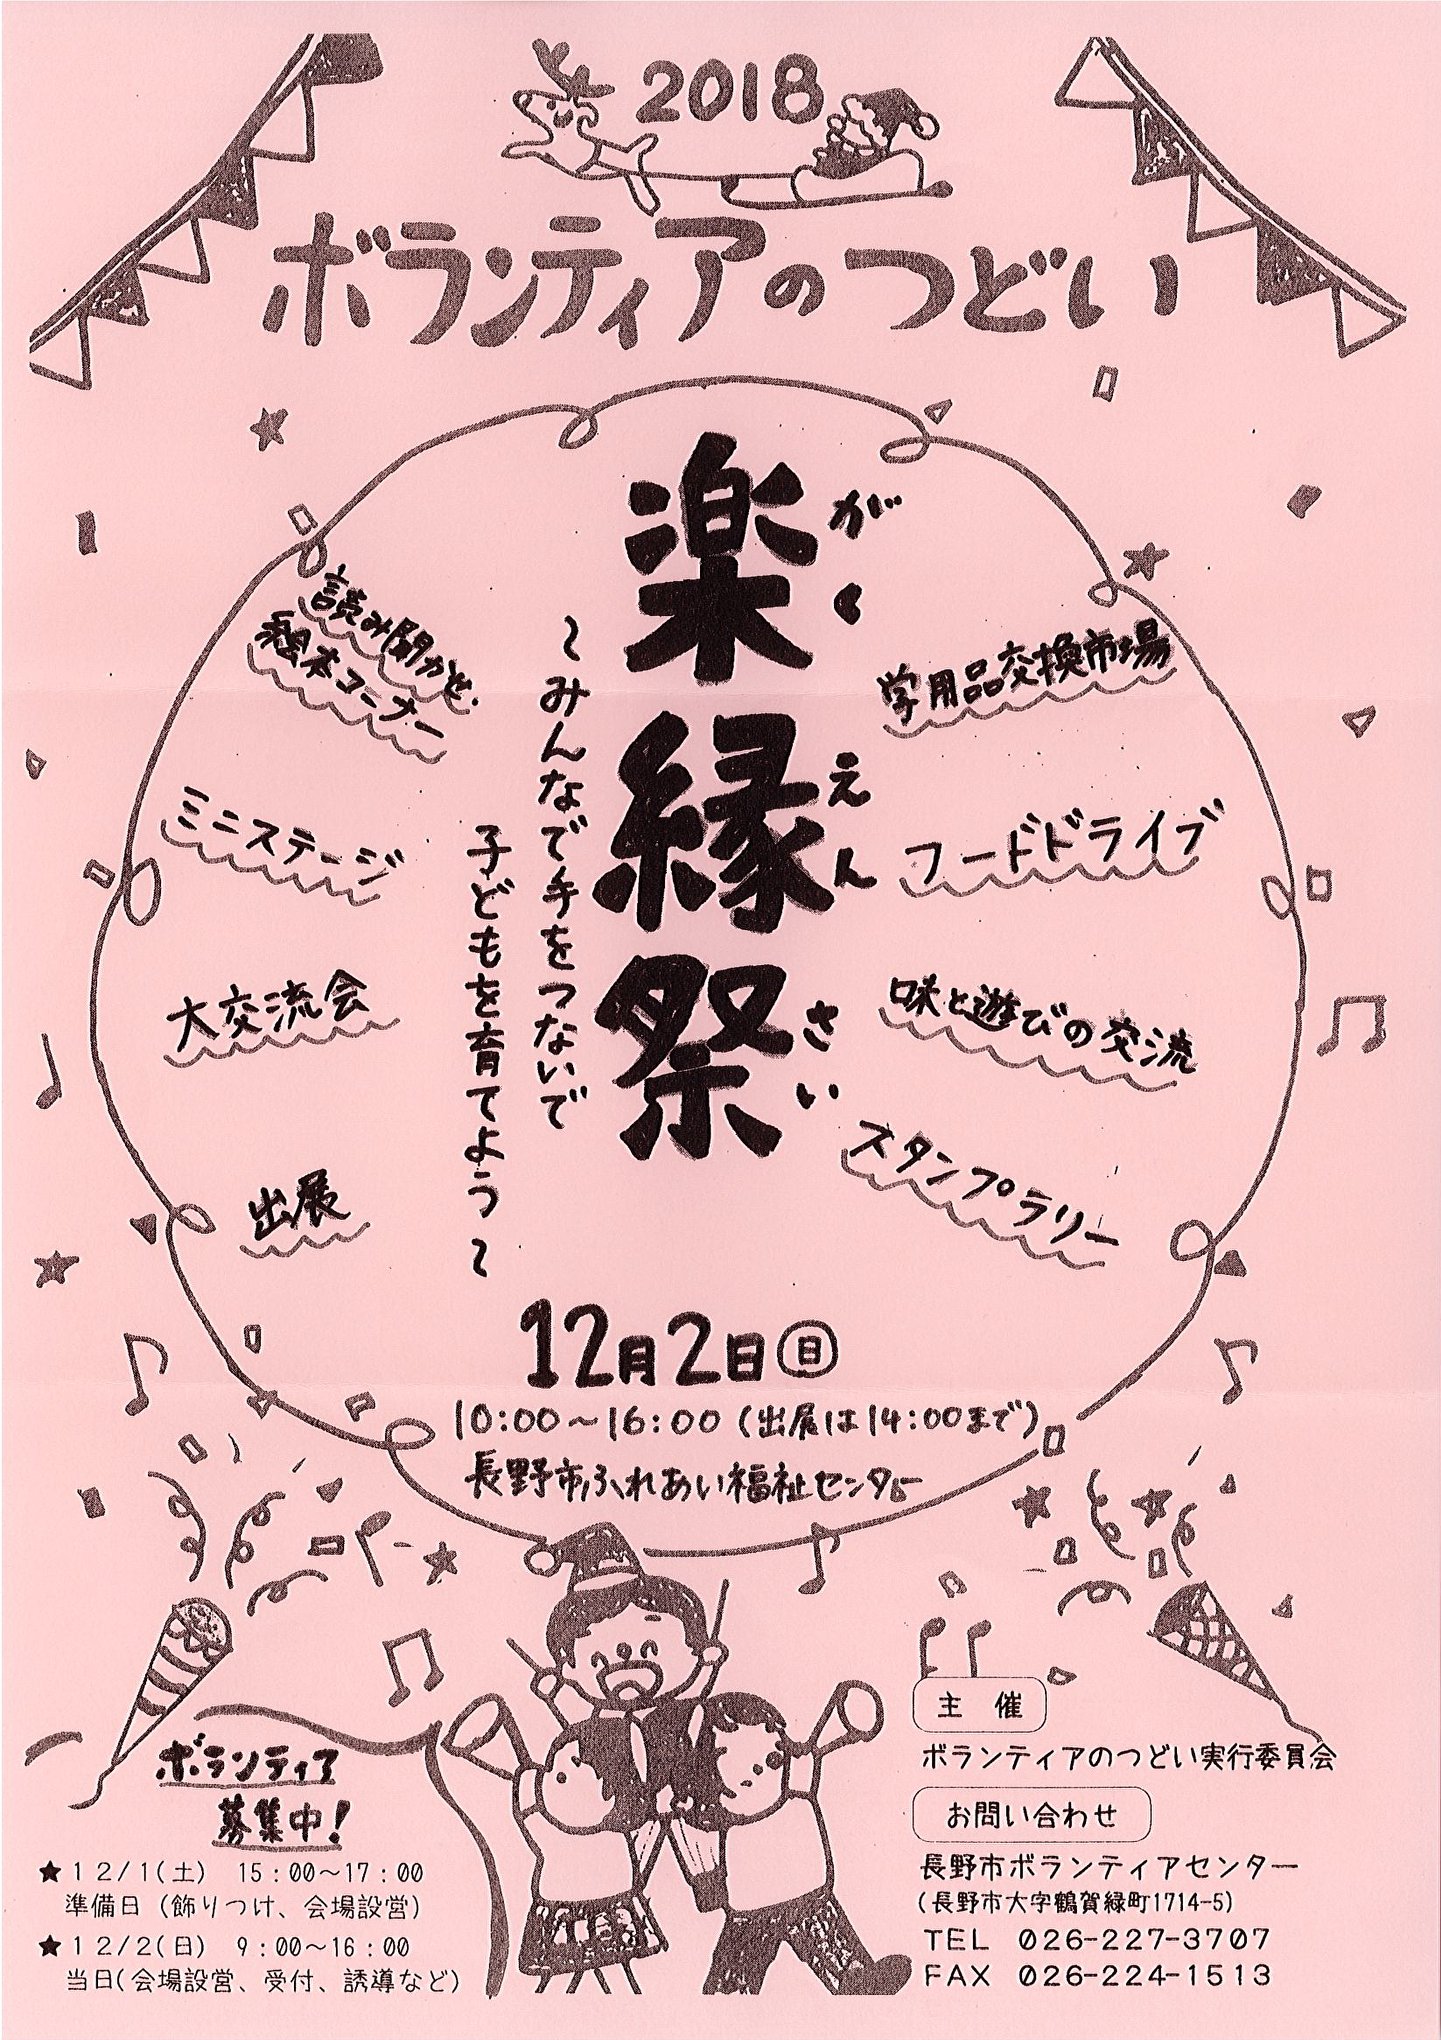 2018
ボランティアのつどい
楽縁祭
がくえんさい
～みんなで手をつないで
子どもを育てよう～
学用品交換市場
フードドライブ
味と遊びの交流
スタンプラリー
読み聞かせ・
絵本コーナー
ミニステージ
大交流会
出展
12月2日㊐
10:00～16:00（出展は14:00まで）
長野市ふれあい福祉センター
ボランティア
募集中！
★１２/１(土)　15：00～17：00
準備日（飾りつけ、会場設営）
★１２/２(日)　9：00～16：00
当日(会場設営、受付、誘導など)
主　催
ボランティアのつどい実行委員会
お問い合わせ
長野市ボランティアセンター
(長野市大字鶴賀緑町1714-5)
TEL　026-227-3707
FAX　026-224-1513